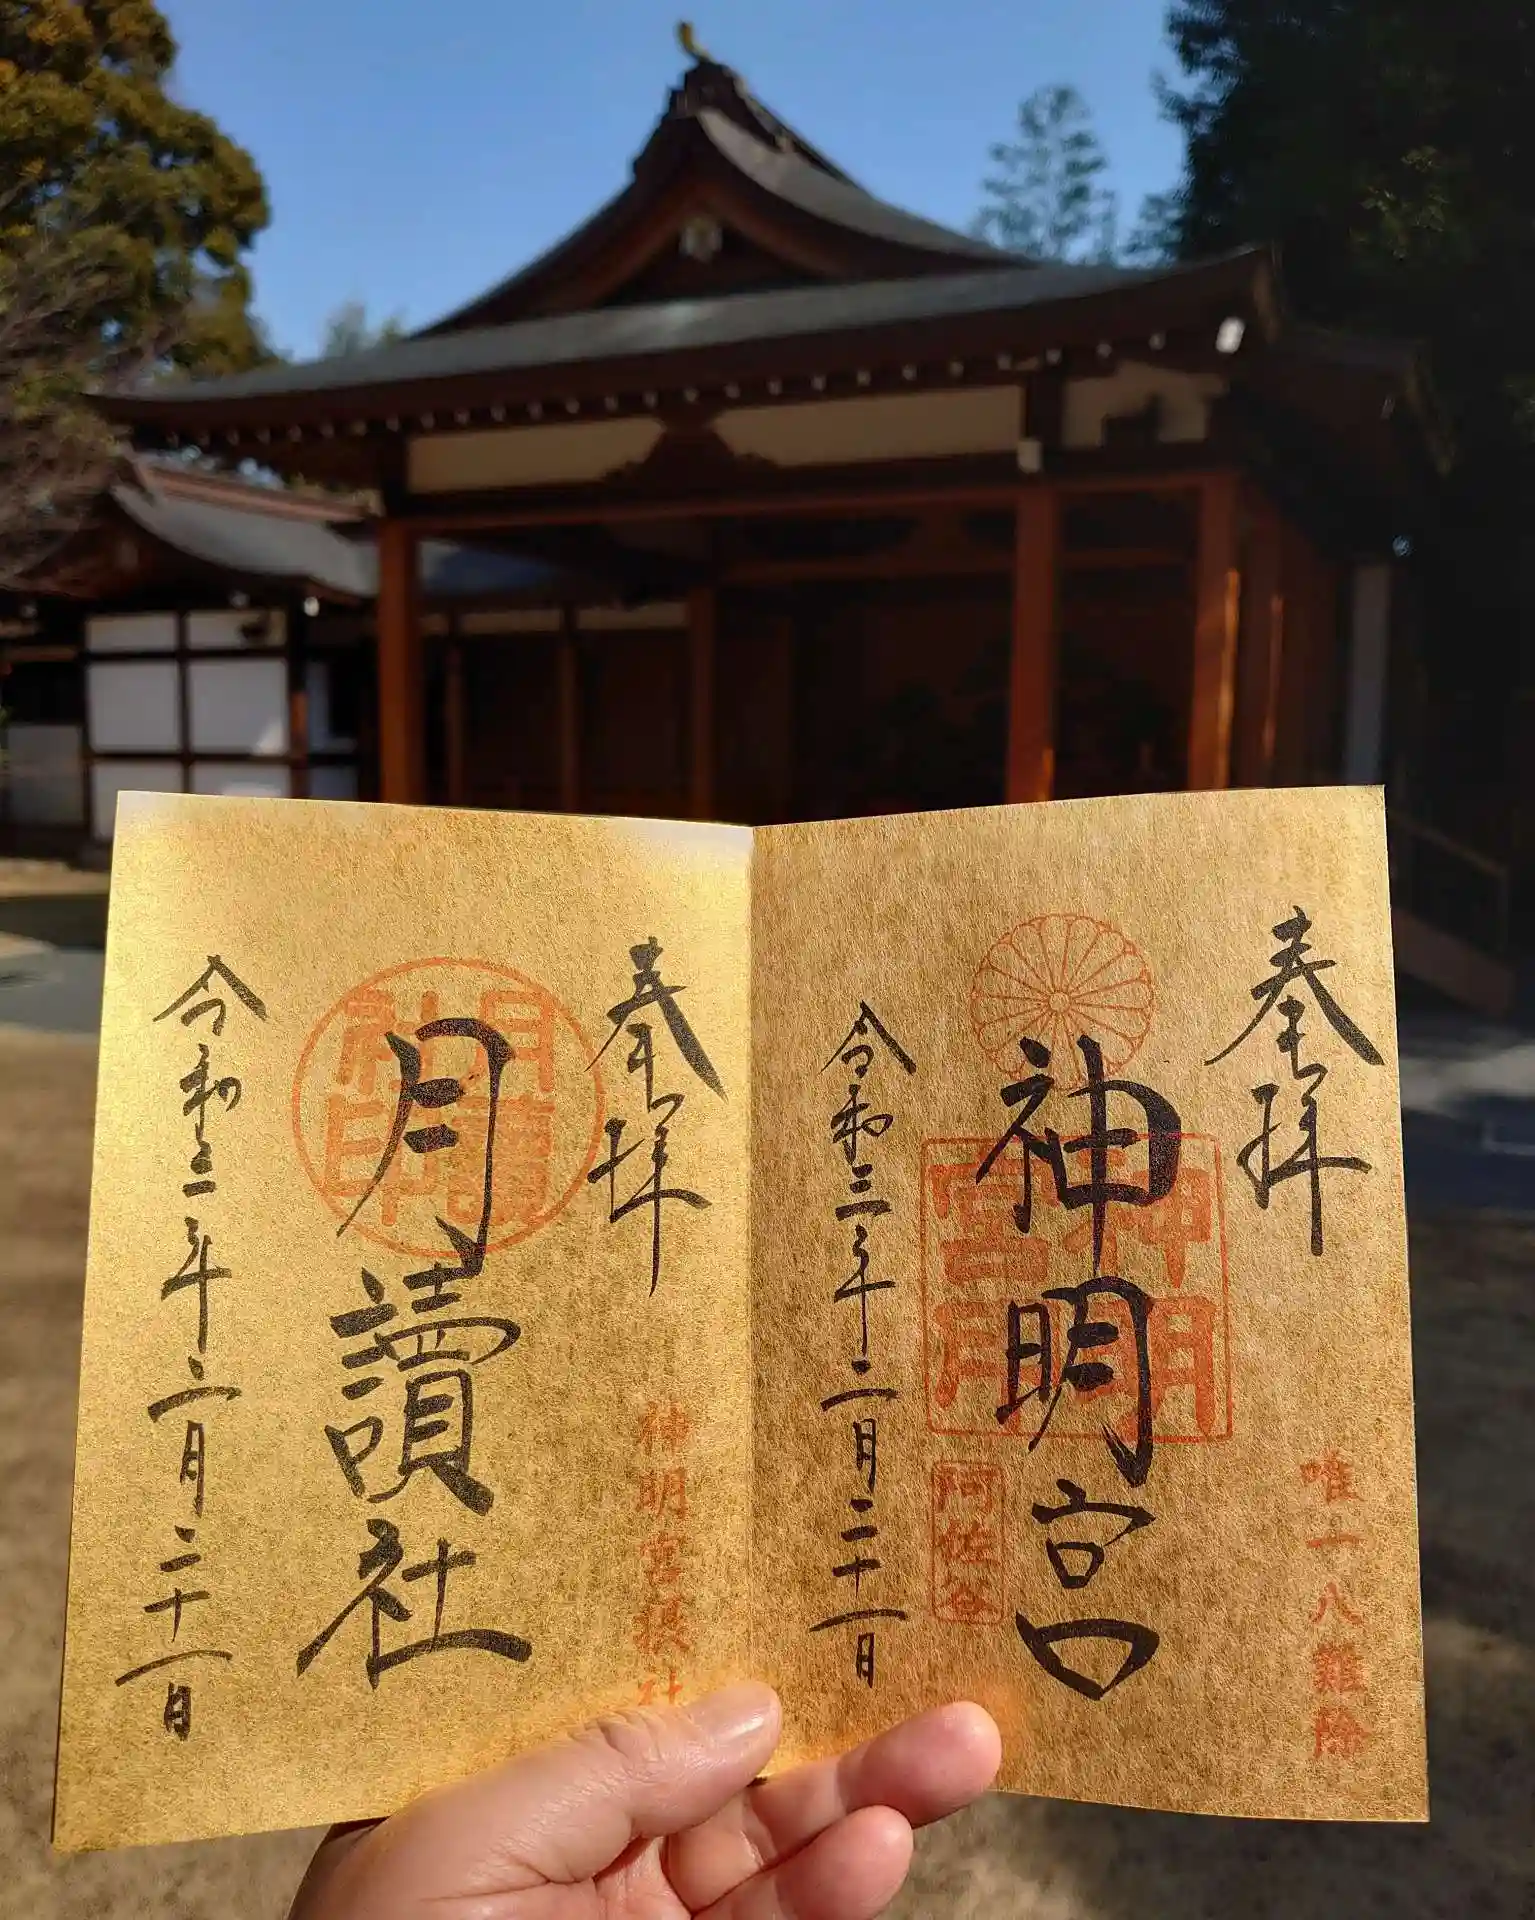 奉拝
唯一八難除
神明宮
阿佐谷
令和三年二月二十一日
奉拝
神明宮摂社
月讀社
月讀社印
令和三年二月二十一日